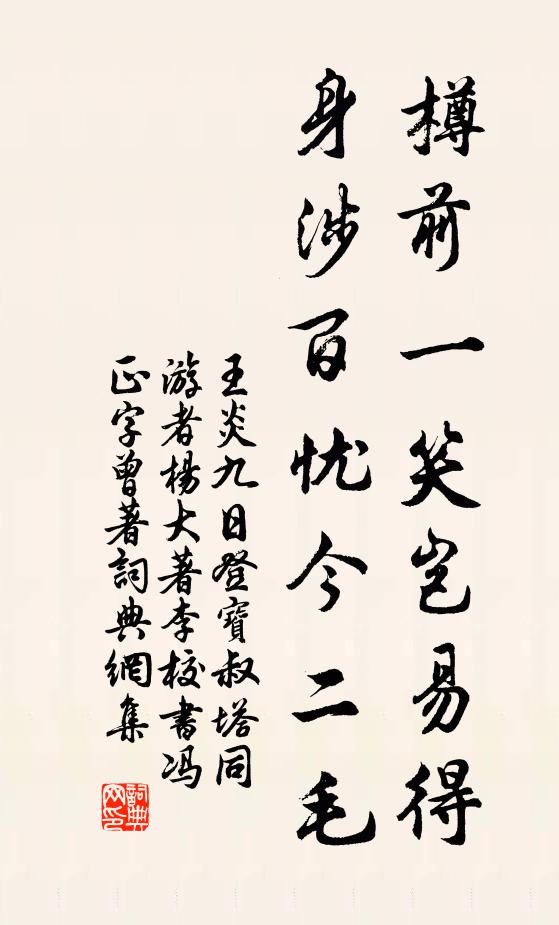 樽前一笑豈易得
身涉百忧今二毛
王炎九日登寶叔塔同
游者楊大著李校書冯
正字曾著詞典網集
詞典网印